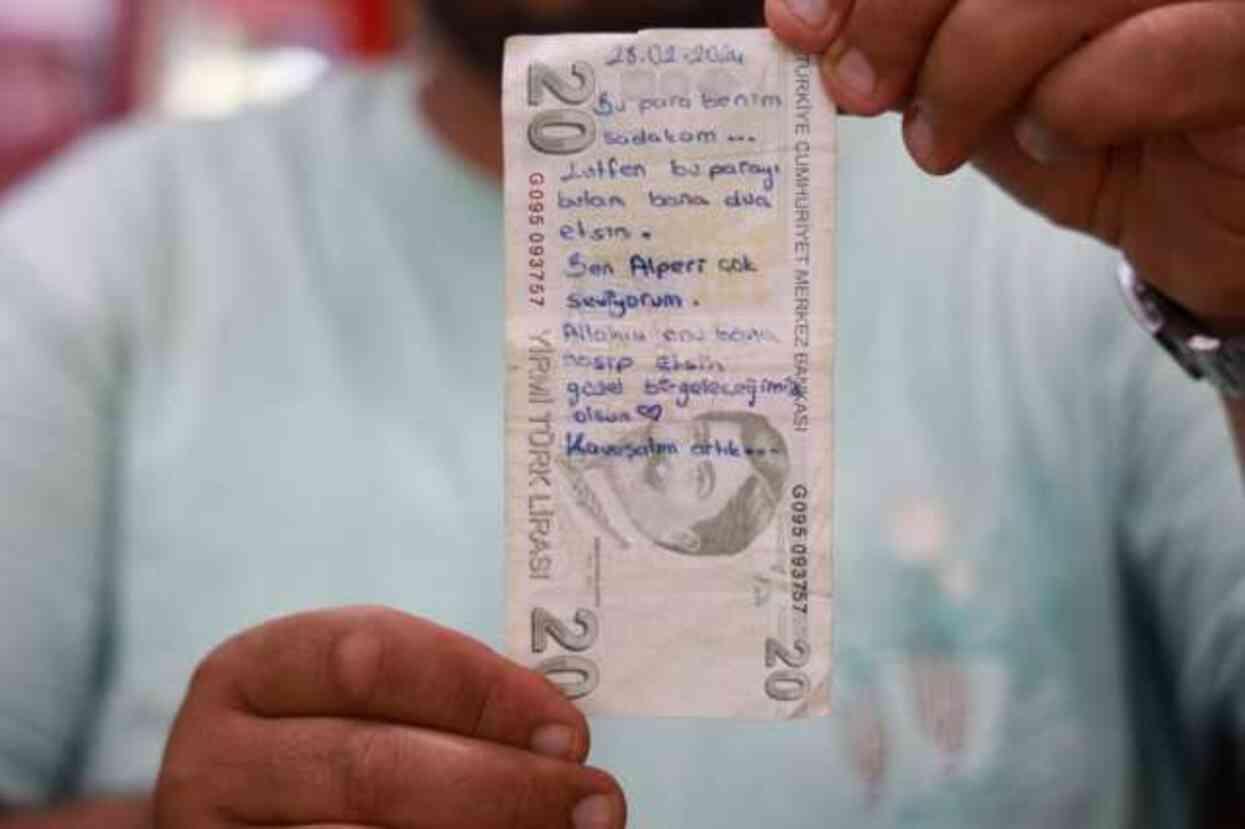 28.02.2024
Bu para benim
sadakam ...
Lütfen bu parayı
bulan bana dua
etsin.
Ben Alperi çok
seviyorum.
Allahım onu bana
nasip etsin
güzel bir geleceğimiz
olsun ♡
Kavuşalım artık...
20
G095 093757
YİRMİ TÜRK LİRASI
20
TÜRKİYE CUMHURİYET MERKEZ BANKASI
G095 093757
20